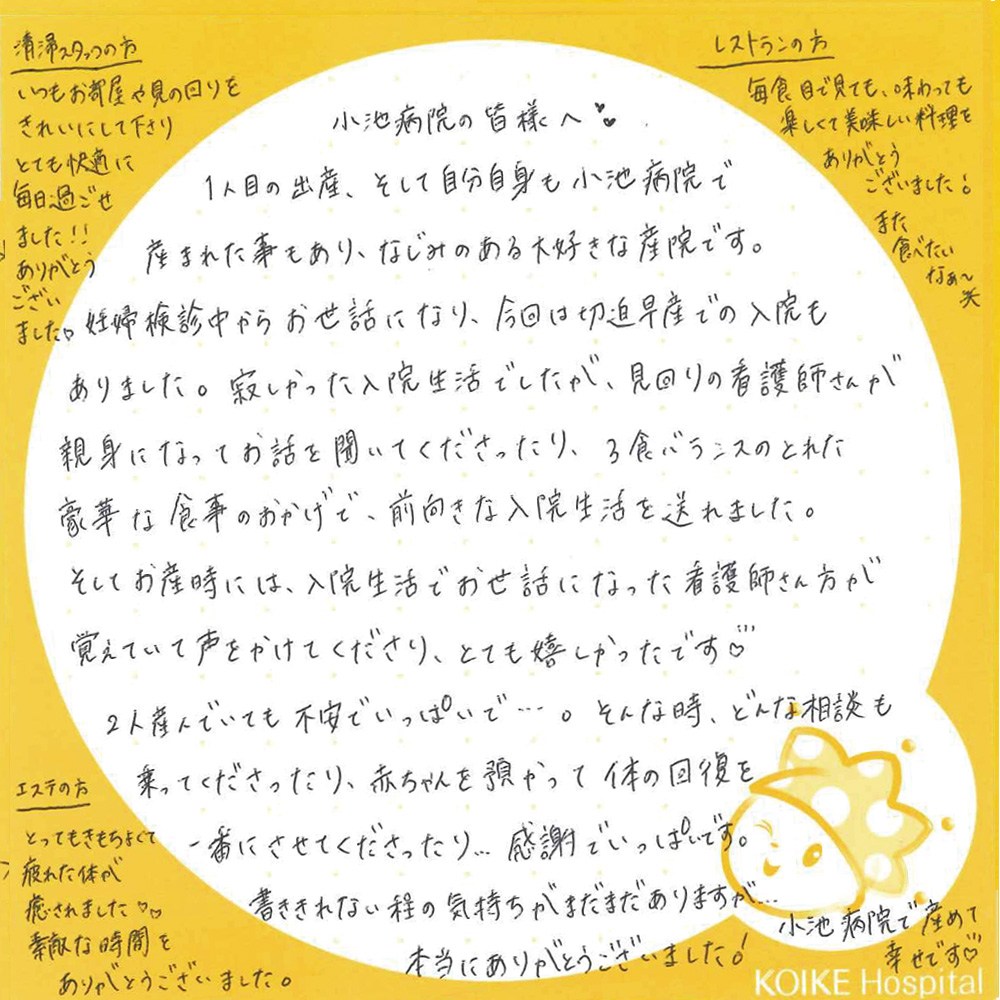 清掃スタッフの方
いつもお部屋や見の回りを
きれいにして下さり
とても快適に
毎日過ごせ
ました!!
ありがとう
ござい
ました♡
レストランの方
毎食目で見ても、味わっても
楽しくて美味しい料理を
ありがとう
ございました!
また
食べたい
なぁ〜
笑
小池病院の皆様へ
1人目の出産、そして自分自身も小池病院で
産まれた事もあり、なじみのある大好きな産院です。
妊婦検診中からお世話になり、今回は切迫早産での入院も
ありました。寂しかった入院生活でしたが、見回りの看護師さんが
親身になってお話を聞いてくださったり、3食バランスのとれた
豪華な食事のおかげで、前向きな入院生活を送れました。
そしてお産時には、入院生活でお世話になった看護師さん方が
覚えていて声をかけてくださり、とても嬉しかったです♡
2人産んでいても不安でいっぱいで…。そんな時、どんな相談も
乗ってくださったり、赤ちゃんを預かって体の回復を
一番にさせてくださったり…感謝でいっぱいです。
書ききれない程の気持ちがまだまだありますが…
本当にありがとうございました!
エステの方
とってもきもちよくて
疲れた体が
癒されました♡♡
素敵な時間を
ありがとうございました。
小池病院で産めて
幸せです♡
KOIKE Hospital